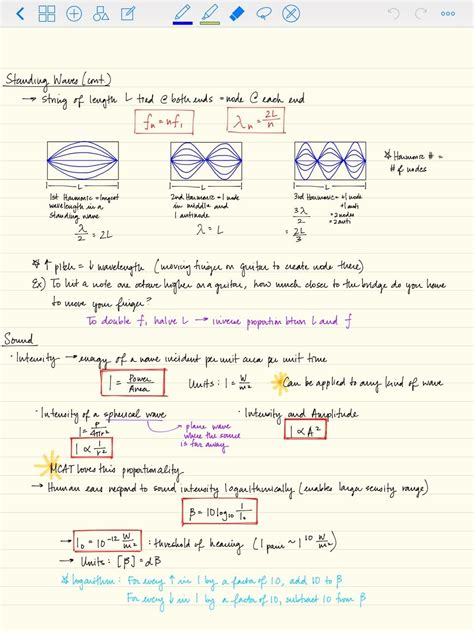 Standing Waves (cont.)
→ string of length L tied @ both ends = node @ each end
fn = nf1
λn = 2L/n
L
L
L
☆ Harmonic # = # of nodes
1st Harmonic = longest wavelength in a standing wave
λ/2 = 2L
2nd Harmonic = 1 node in middle and 1 antinode
λ = L
3rd Harmonic =
3λ/2 = 2 nodes
2 anti
= 2L/3
☆ ↑ pitch = ↓ wavelength (moving finger on guitar to create node there)
Ex) To hit a note one octave higher on a guitar, how much closer to the bridge do you have
to move your finger?
To double f, halve L → inverse proportion btwn L and f
Sound
· Intensity → energy of a wave incident per unit area per unit time
I = Power/Area
Units: I = W/m²
☆ Can be applied to any kind of wave
· Intensity of a spherical wave
I = P/4πr²
I ∝ 1/r²
→ plane wave where the source is far away
· Intensity and Amplitude
I ∝ A²
☆ MCAT loves this proportionality
→ Human ears respond to sound intensity logarithmically (enables larger range)
β = 10 log10 I/I0
→ I0 = 10⁻¹² W/m² : threshold of hearing (I pain ~ 1⁰ W/m²)
→ Units: [β] = dB
☆ logarithm: For every ↑ in I by a factor of 10, add 10 to β
For every ↓ in I by a factor of 10, subtract 10 from β